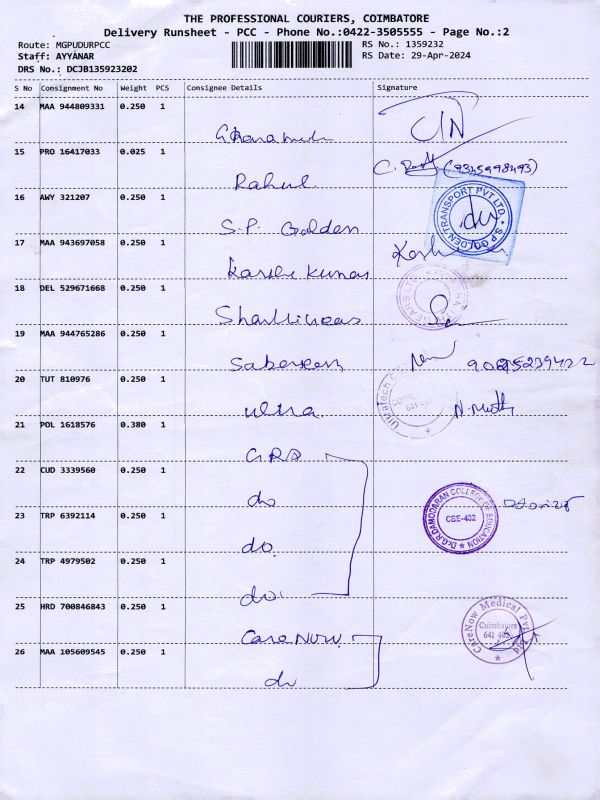 THE PROFESSIONAL COURIERS, COIMBATORE
Delivery Runsheet - PCC - Phone No.:0422-3505555 - Page No.:2
Route: MGPUDURPCC
RS No.: 1359232
Staff: AYYANAR
RS Date: 29-Apr-2024
DRS No.: DCJB135923202
S No Consignment No Weight PCS Consignee Details Signature
14 MAA 944809331 0.250 1
15 PRO 16417033 0.025 1
Rahul
16 AWY 321207 0.250 1
S.P. Golden
S.P GOLDEN TRANSPORT PVT LTD
17 MAA 943697058 0.250 1
18 DEL 529671668 0.250 1
19 MAA 944765286 0.250 1
20 TUT 810976 0.250 1
ultra
21 POL 1618576 0.380 1
GRD
22 CUD 3339560 0.250 1
do
Dr.G.R.DAMODARAN COLLEGE OF EDUCATION
CBE-402
23 TRP 6392114 0.250 1
do
24 TRP 4979502 0.250 1
do
25 HRD 700846843 0.250 1
Care Now
CareNow Medical Pvt Ltd
Coimbatore
641 402
26 MAA 105609545 0.250 1
do